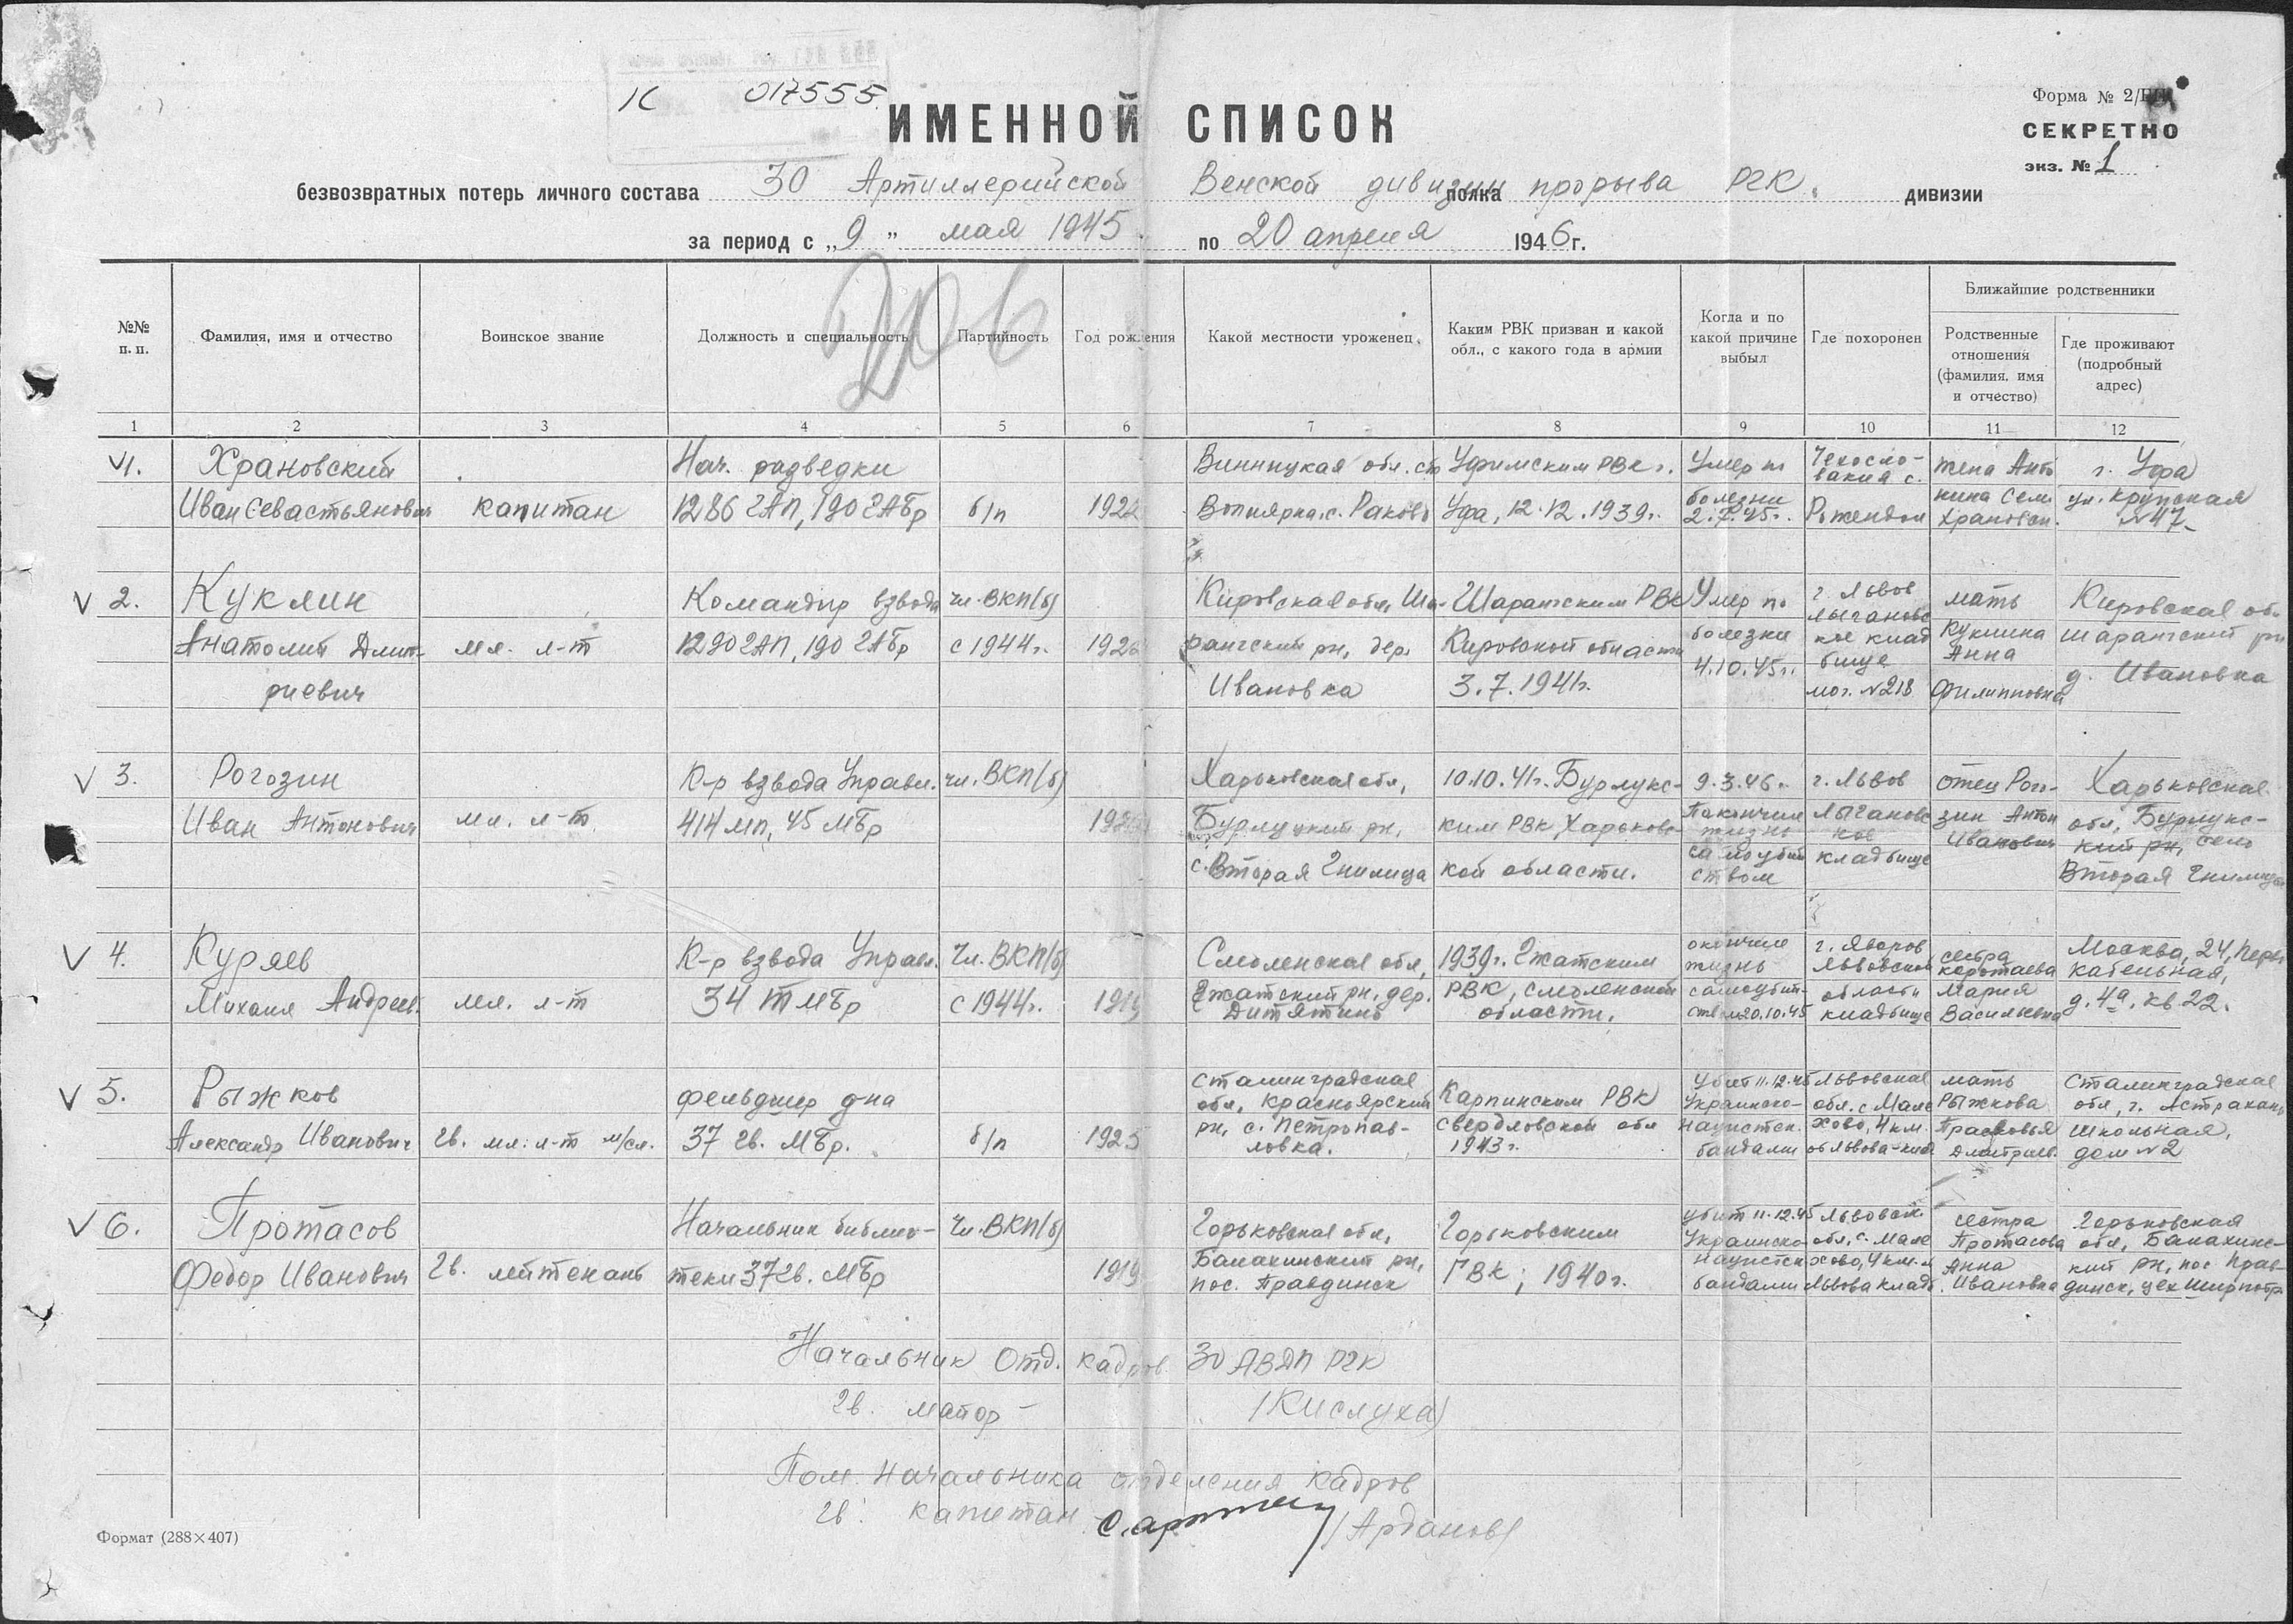 К 017555
Форма № 2/
ИМЕННОЙ СПИСОК
СЕКРЕТНО
экз. № 1
безвозвратных потерь личного состава 30 Артиллерийской Венской дивизии полка прорыва РГК. дивизии
за период с „9" мая 1945 по 20 апреля 1946 г.
206
№№ п. п.
Фамилия, имя и отчество
Воинское звание
Должность и специальность
Партийность
Год рождения
Какой местности уроженец
Каким РВК призван и какой обл., с какого года в армии
Когда и по какой причине выбыл
Где похоронен
Ближайшие родственники
Родственные отношения (фамилия, имя и отчество)
Где проживают (подробный адрес)
1 2 3 4 5 6 7 8 9 10 11 12
V 1.
Храновский
Иван Севастьянович
капитан
Нач. разведки
1286 ГАП, 190 ГАБр
б/п
1922
Винницкая обл. ст
Вопнярка, с. Раково
Уфимским РВК г.
Уфа, 12.12.1939г.
Умер по
болезни
2.7.45г.
Чехосло-
вакия с.
Рожендол
жена Анто
нина Сем.
Храновск.
г. Уфа
ул. Крупская
№47
V 2.
Куклин
Анатолий Дмит-
риевич
мл. л-т
Командир взвода
1290 ГАП, 190 ГАБр
чл. ВКП(б)
с 1944г.
192
Кировская обл, Ша-
рангский рн, дер.
Ивановка
Шарангским РВК
Кировской области
3.7.1941г.
Умер по
болезни
4.10.45г.
г. Львов
лычановс
кое клад
бище
мог. №218
мать
Куклина
Анна
Филипповна
Кировская об.
Шарангский рн
д. Ивановка
V 3.
Рогозин
Иван Антонович
мл. л-т
К-р взвода Управл.
414 мп, 45 МБр
чл. ВКП(б)
192
Харьковская обл,
Бурлукский рн,
с. Вторая Гнилица
10.10.41г. Бурлукс-
ким РВК, Харьковс-
кой области.
9.3.46г.
Покончил
жизнь
самоубий
ством
г. Львов
лычановс
кое
кладбище
отец Рого-
зин Антон
Иванович
Харьковская
обл, Бурлукс-
кий рн, село
Вторая Гнилица
V 4.
Куряев
Михаил Андреев.
мл. л-т
К-р взвода Управл.
34 ТМБр
Чл. ВКП(б)
с 1944г.
1919
Смоленская обл,
Гжатский рн, дер.
Дитятино
1939г. Гжатским
РВК, Смоленской
области.
окончил
жизнь
самоубий-
ством 20.10.45
г. Яворов
Львовской
области
кладбище
сестра
Коротаева
Мария
Васильевна
Москва, 24, Перов
Кабельная,
д. 4а, кв 22.
V 5.
Рыжков
Александр Иванович
Гв. мл. л-т м/сл.
фельдшер дна
37 гв. МБр.
б/п
1925
Сталинградская
обл, Красноярский
рн, с. Петропав-
ловка.
Карпинским РВК
Свердловской обл
1943г.
Убит 11.12.45
Украинско-
нацистск.
бандами
Львовская
обл. с Мале
хово, 4 км.
от Львова-клад
мать
Рыжкова
Прасковья
Дмитриев.
Сталинградская
обл, г. Астрахань
Школьная,
дом №2
V 6.
Протасов
Федор Иванович
Гв. лейтенант
Начальник библио-
теки 37 гв. МБр
Чл. ВКП(б)
1919
Горьковская обл,
Балахинский рн,
пос. Правдинск
Горьковским
ГВК, 1940г.
Убит 11.12.45
Украинско
нацистск
бандами
Львовск.
обл, с. Мале
хово, 4 км.
Львова кладб.
сестра
Протасова
Анна
Ивановна
Горьковская
обл, Балахинс-
кий рн, пос Прав-
динск, цех Ширпотр
Начальник Отд. кадров 30 АВДП РГК
гв. майор /Кислуха/
Пом. Начальника отделения кадров
гв. капитан /Арданов/
Формат (288×407)